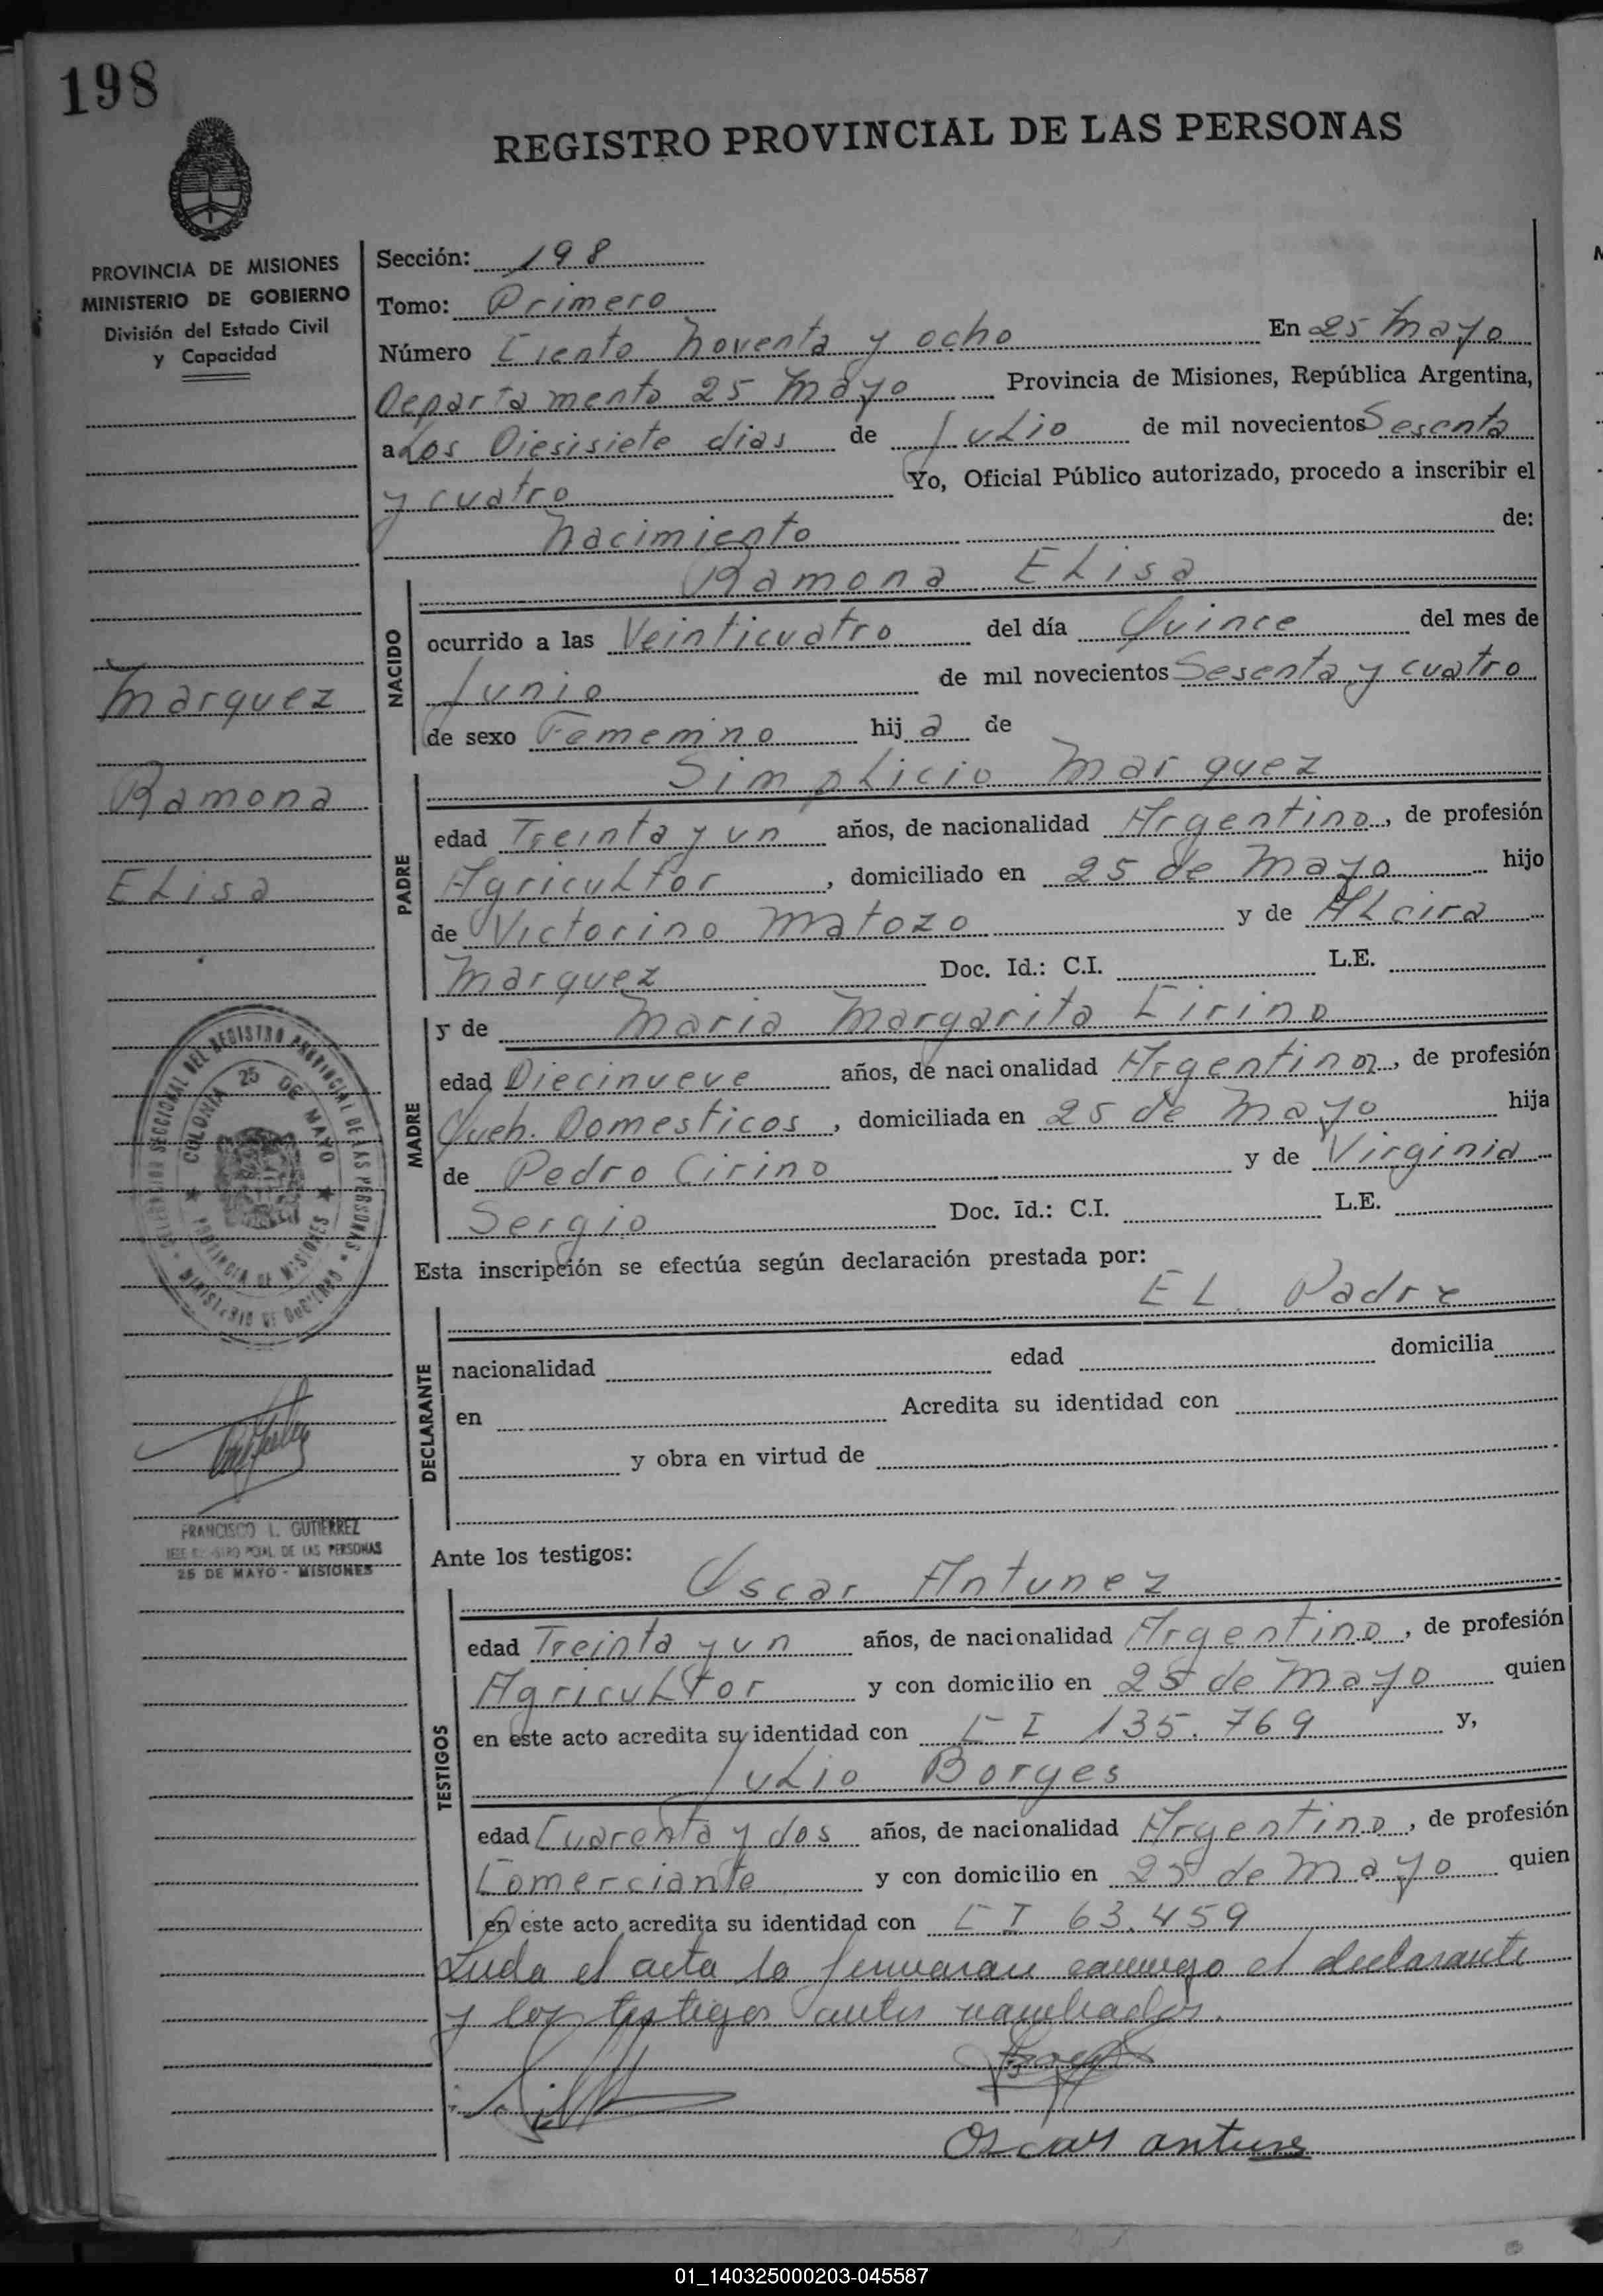 198
REGISTRO PROVINCIAL DE LAS PERSONAS
PROVINCIA DE MISIONES
MINISTERIO DE GOBIERNO
División del Estado Civil
y Capacidad
Marquez
Ramona
Elisa
DELEGACION SECCIONAL DEL REGISTRO PROVINCIAL DE LAS PERSONAS
COLONIA 25 DE MAYO
PROVINCIA DE MISIONES
MINISTERIO DE GOBIERNO
FRANCISCO L. GUTIERREZ
JEFE REGISTRO PCIAL DE LAS PERSONAS
25 DE MAYO - MISIONES
Sección: 198
Tomo: Primero
Número Ciento Noventa y ocho En 25 Mayo
Departamento 25 Mayo Provincia de Misiones, República Argentina,
a Los Diesisiete dias de Julio de mil novecientos Sesenta
y cuatro Yo, Oficial Público autorizado, procedo a inscribir el
Nacimiento de:
Ramona Elisa
NACIDO
ocurrido a las Veinticuatro del día Quince del mes de
Junio de mil novecientos Sesenta y cuatro
de sexo Fememino hij a de
Simplicio Marquez
PADRE
edad Treinta y un años, de nacionalidad Argentino, de profesión
Agricultor, domiciliado en 25 de Mayo hijo
de Victorino Matozo y de Alcira
Marquez Doc. Id.: C.I. L.E.
MADRE
y de Maria Margarita Cirino
edad Diecinueve años, de nacionalidad Argentina, de profesión
Queh. Domesticos, domiciliada en 25 de Mayo hija
de Pedro Cirino y de Virginia
Sergio Doc. Id.: C.I. L.E.
Esta inscripción se efectúa según declaración prestada por:
EL Padre
DECLARANTE
nacionalidad edad domicilia
en Acredita su identidad con
y obra en virtud de
Ante los testigos:
Oscar Antunez
TESTIGOS
edad Treinta y un años, de nacionalidad Argentino, de profesión
Agricultor y con domicilio en 25 de Mayo quien
en este acto acredita su identidad con C I 135.769 y,
Julio Borges
edad Cuarenta y dos años, de nacionalidad Argentino, de profesión
Comerciante y con domicilio en 25 de Mayo quien
en este acto acredita su identidad con C I 63.459
Leida el acta la firmaran conmigo el declarante
y los testigos antes nombrados.
Oscar antune
01_140325000203-045587